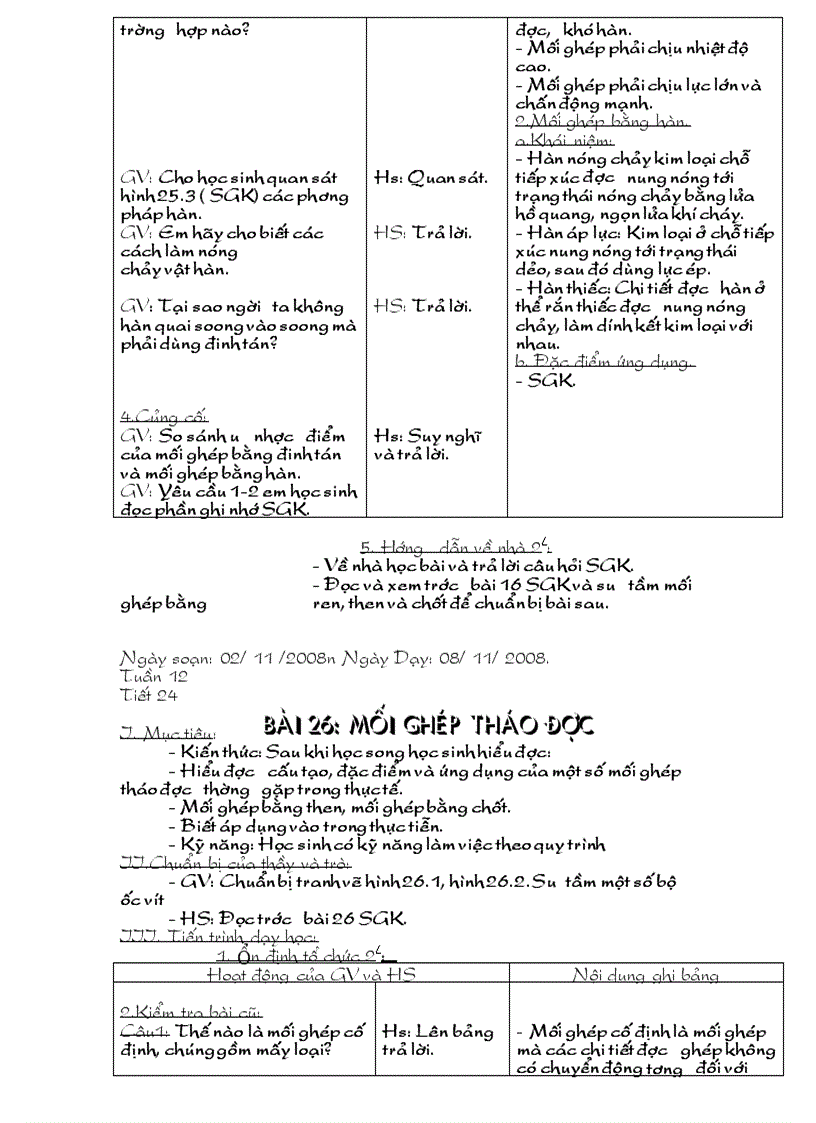 trờng hợp nào?
đợc, khó hàn.
- Mối ghép phải chịu nhiệt độ
cao.
- Mối ghép phải chịu lực lớn và
chấn động mạnh.
2.Mối ghép bằng hàn.
a.Khái niệm:
GV: Cho học sinh quan sát
hình25.3 ( SGK) các phơng
pháp hàn.
GV: Em hãy cho biết các
cách làm nóng
chảy vật hàn.
GV: Tại sao ngời ta không
hàn quai soong vào soong mà
phải dùng đinh tán?
4.Củng cố:
GV: So sánh u nhợc điểm
của mối ghép bằng đinh tán
và mối ghép bằng hàn.
GV: Yêu cầu 1-2 em học sinh
đọc phần ghi nhớ SGK.
Hs: Quan sát.
HS: Trả lời.
HS: Trả lời.
Hs: Suy nghĩ
và trả lời.
- Hàn nóng chảy kim loại chỗ
tiếp xúc đợc nung nóng tới
trạng thái nóng chảy bằng lửa
hồ quang, ngọn lửa khí cháy.
- Hàn áp lực: Kim loại ở chỗ tiếp
xúc nung nóng tới trạng thái
dẻo, sau đó dùng lực ép.
- Hàn thiếc: Chi tiết đợc hàn ở
thể rắn thiếc đợc nung nóng
chảy, làm dính kết kim loại với
nhau.
b. Đặc điểm ứng dụng.
- SGK.
5. Hớng dẫn về nhà 2/:
- Về nhà học bài và trả lời câu hỏi SGK.
- Đọc và xem trớc bài 16 SGK và su tầm mối
ghép bằng ren, then và chốt để chuẩn bị bài sau.
Ngày soạn: 02/ 11 /2008n Ngày Dạy: 08/ 11/ 2008.
Tuần 12
Tiết 24
BÀI 26: MỐI GHÉP THÁO ĐỢC
I. Mục tiêu:
- Kiến thức: Sau khi học song học sinh hiểu đợc:
- Hiểu đợc cấu tạo, đặc điểm và ứng dụng của một số mối ghép
tháo đợc thờng gặp trong thực tế.
- Mối ghép bằng then, mối ghép bằng chốt.
- Biết áp dụng vào trong thực tiễn.
- Kỹ năng: Học sinh có kỹ năng làm việc theo quy trình
II.Chuẩn bị của thầy và trò:
- GV: Chuẩn bị tranh vẽ hình 26.1, hình 26.2. Su tầm một số bộ
ốc vít
- HS: Đọc trớc bài 26 SGK.
III. Tiến trình dạy học:
1. Ổn định tổ chức 2/:
Hoạt động của GV và HS
Nội dung ghi bảng
2.Kiểm tra bài cũ:
Câu1: Thế nào là mối ghép cố
định, chúng gồm mấy loại?
Hs: Lên bảng
trả lời.
- Mối ghép cố định là mối ghép
mà các chi tiết đợc ghép không
có chuyển động tơng đối với